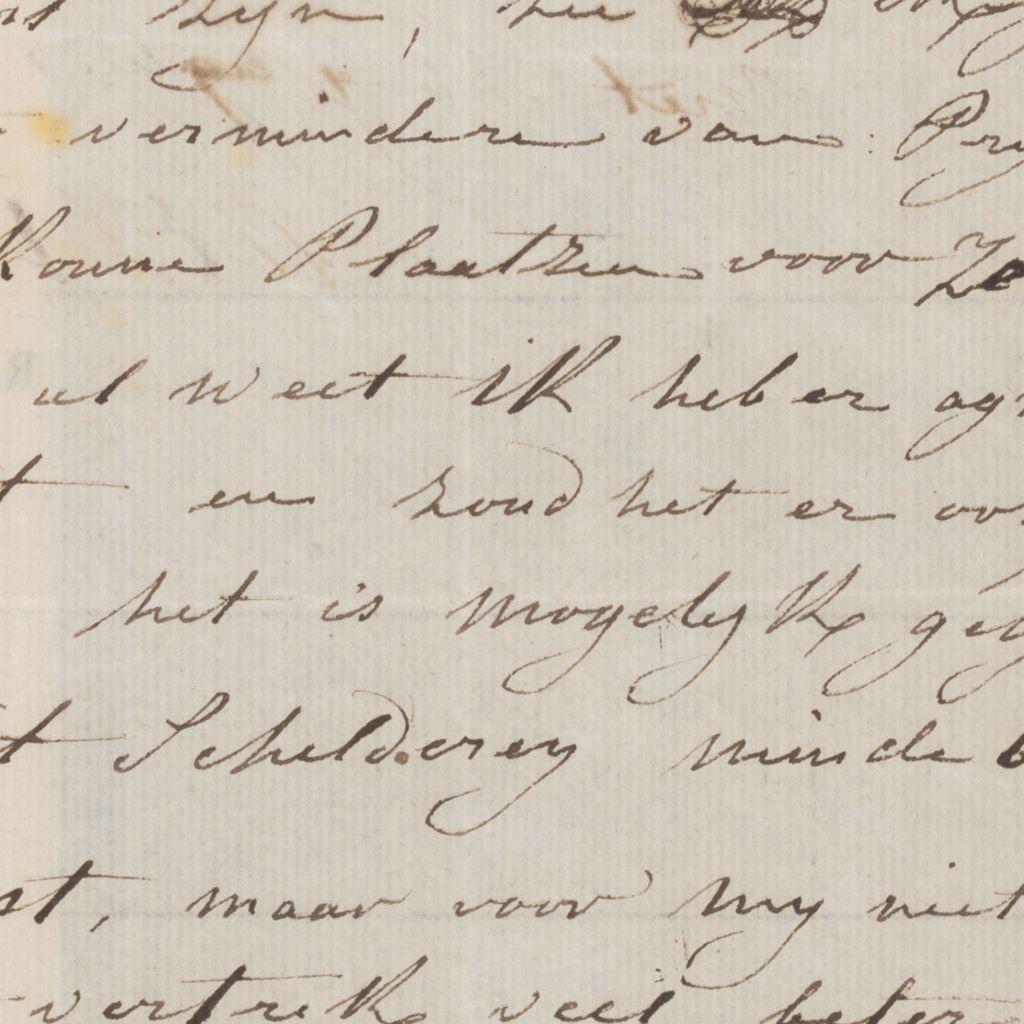 zijn, zee
verminderen van Pry
Konne Plaatzen voor Ze
al weet ik heb er ag
t en zoud het er oo
het is mogelyk geg
t Schelderey minde
st, maar voor my niet
vertrek veel beter